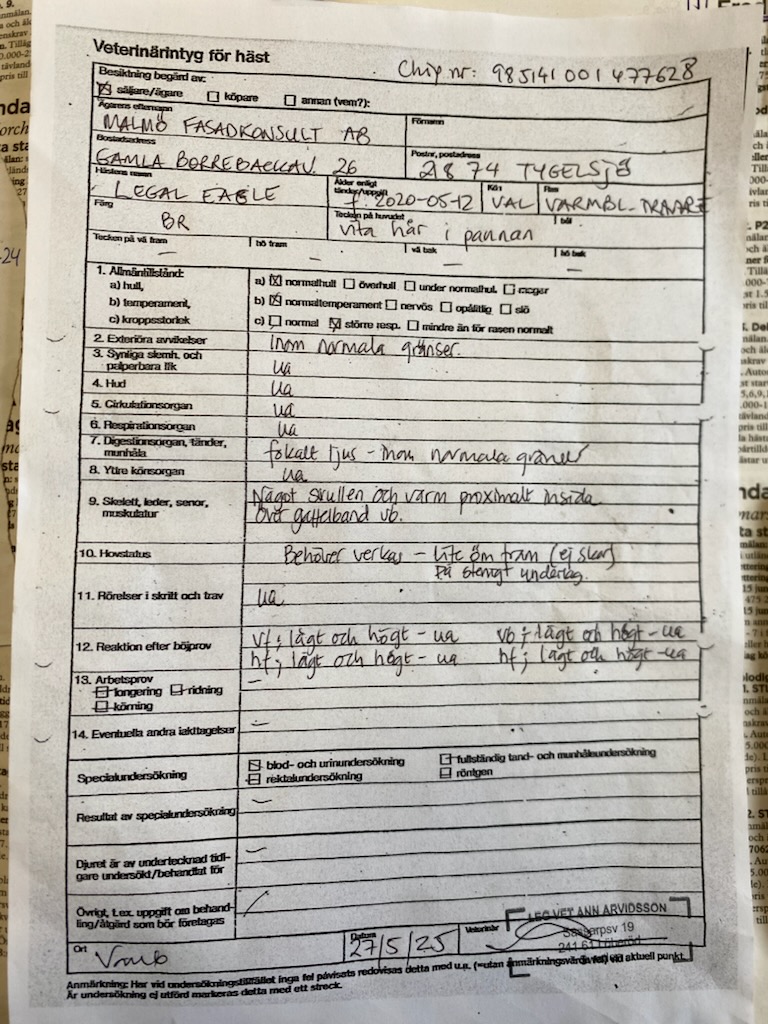 Veterinärintyg för häst
Chip nr: 985141001477628
Besiktning begärd av:
säljare/ägare köpare annan (vem?):
Ägarens efternamn Förnamn
MALMÖ FASADKONSULT AB
Bostadsadress Postnr, postadress
GAMLA BORREBACKAV. 26 218 74 TYGELSJÖ
Hästens namn Ålder enligt tänder/uppgift Kön Ras
LEGAL EAGLE f. 2020-05-12 VAL VARMBL. TRAVARE
Färg Tecken på huvudet bål
BR vita hår i pannan
Tecken på vä fram hö fram vä bak hö bak
– – – –
1. Allmäntillstånd:
a) hull, a) normalhull överhull under normalhul. mager
b) temperament, b) normaltemperament nervös opålitlig slö
c) kroppsstorlek c) normal större resp. mindre än för rasen normalt
2. Exteriöra avvikelser Inom normala gränser.
3. Synliga slemh. och
palperbara llk ua
4. Hud ua
5. Cirkulationsorgan ua
6. Respirationsorgan ua
7. Digestionsorgan, tänder,
munhåla fokalt ljus - inom normala gränser
8. Yttre könsorgan ua
9. Skelett, leder, senor,
muskulatur
Något svullen och varm proximalt insida
över gaffelband vb.
10. Hovstatus Behöver verkas – lite öm fram (ej skor)
på stenigt underlag.
11. Rörelser i skritt och trav ua
12. Reaktion efter böjprov vf; lågt och högt – ua vb; lågt och högt – ua
hf; lågt och högt – ua hf; lågt och högt – ua
13. Arbetsprov –
longering ridning
körning
14. Eventuella andra iakttagelser –
Specialundersökning blod- och urinundersökning fullständig tand- och munhåleundersökning
rektalundersökning röntgen
Resultat av specialundersökning –
Djuret är av undertecknad tidi-
gare undersökt/behandlat för –
Övrigt, t.ex. uppgift om behand-
ling/åtgärd som bör företagas
LEG VET ANN ARVIDSSON
Ort Datum Veterinär
27/5/25
Anmärkning: Har vid undersökningstillfället inga fel påvisats redovisas detta med u.a. (=utan anmärkningsvärda fel) vid aktuell punkt.
Är undersökning ej utförd markeras detta med ett streck.